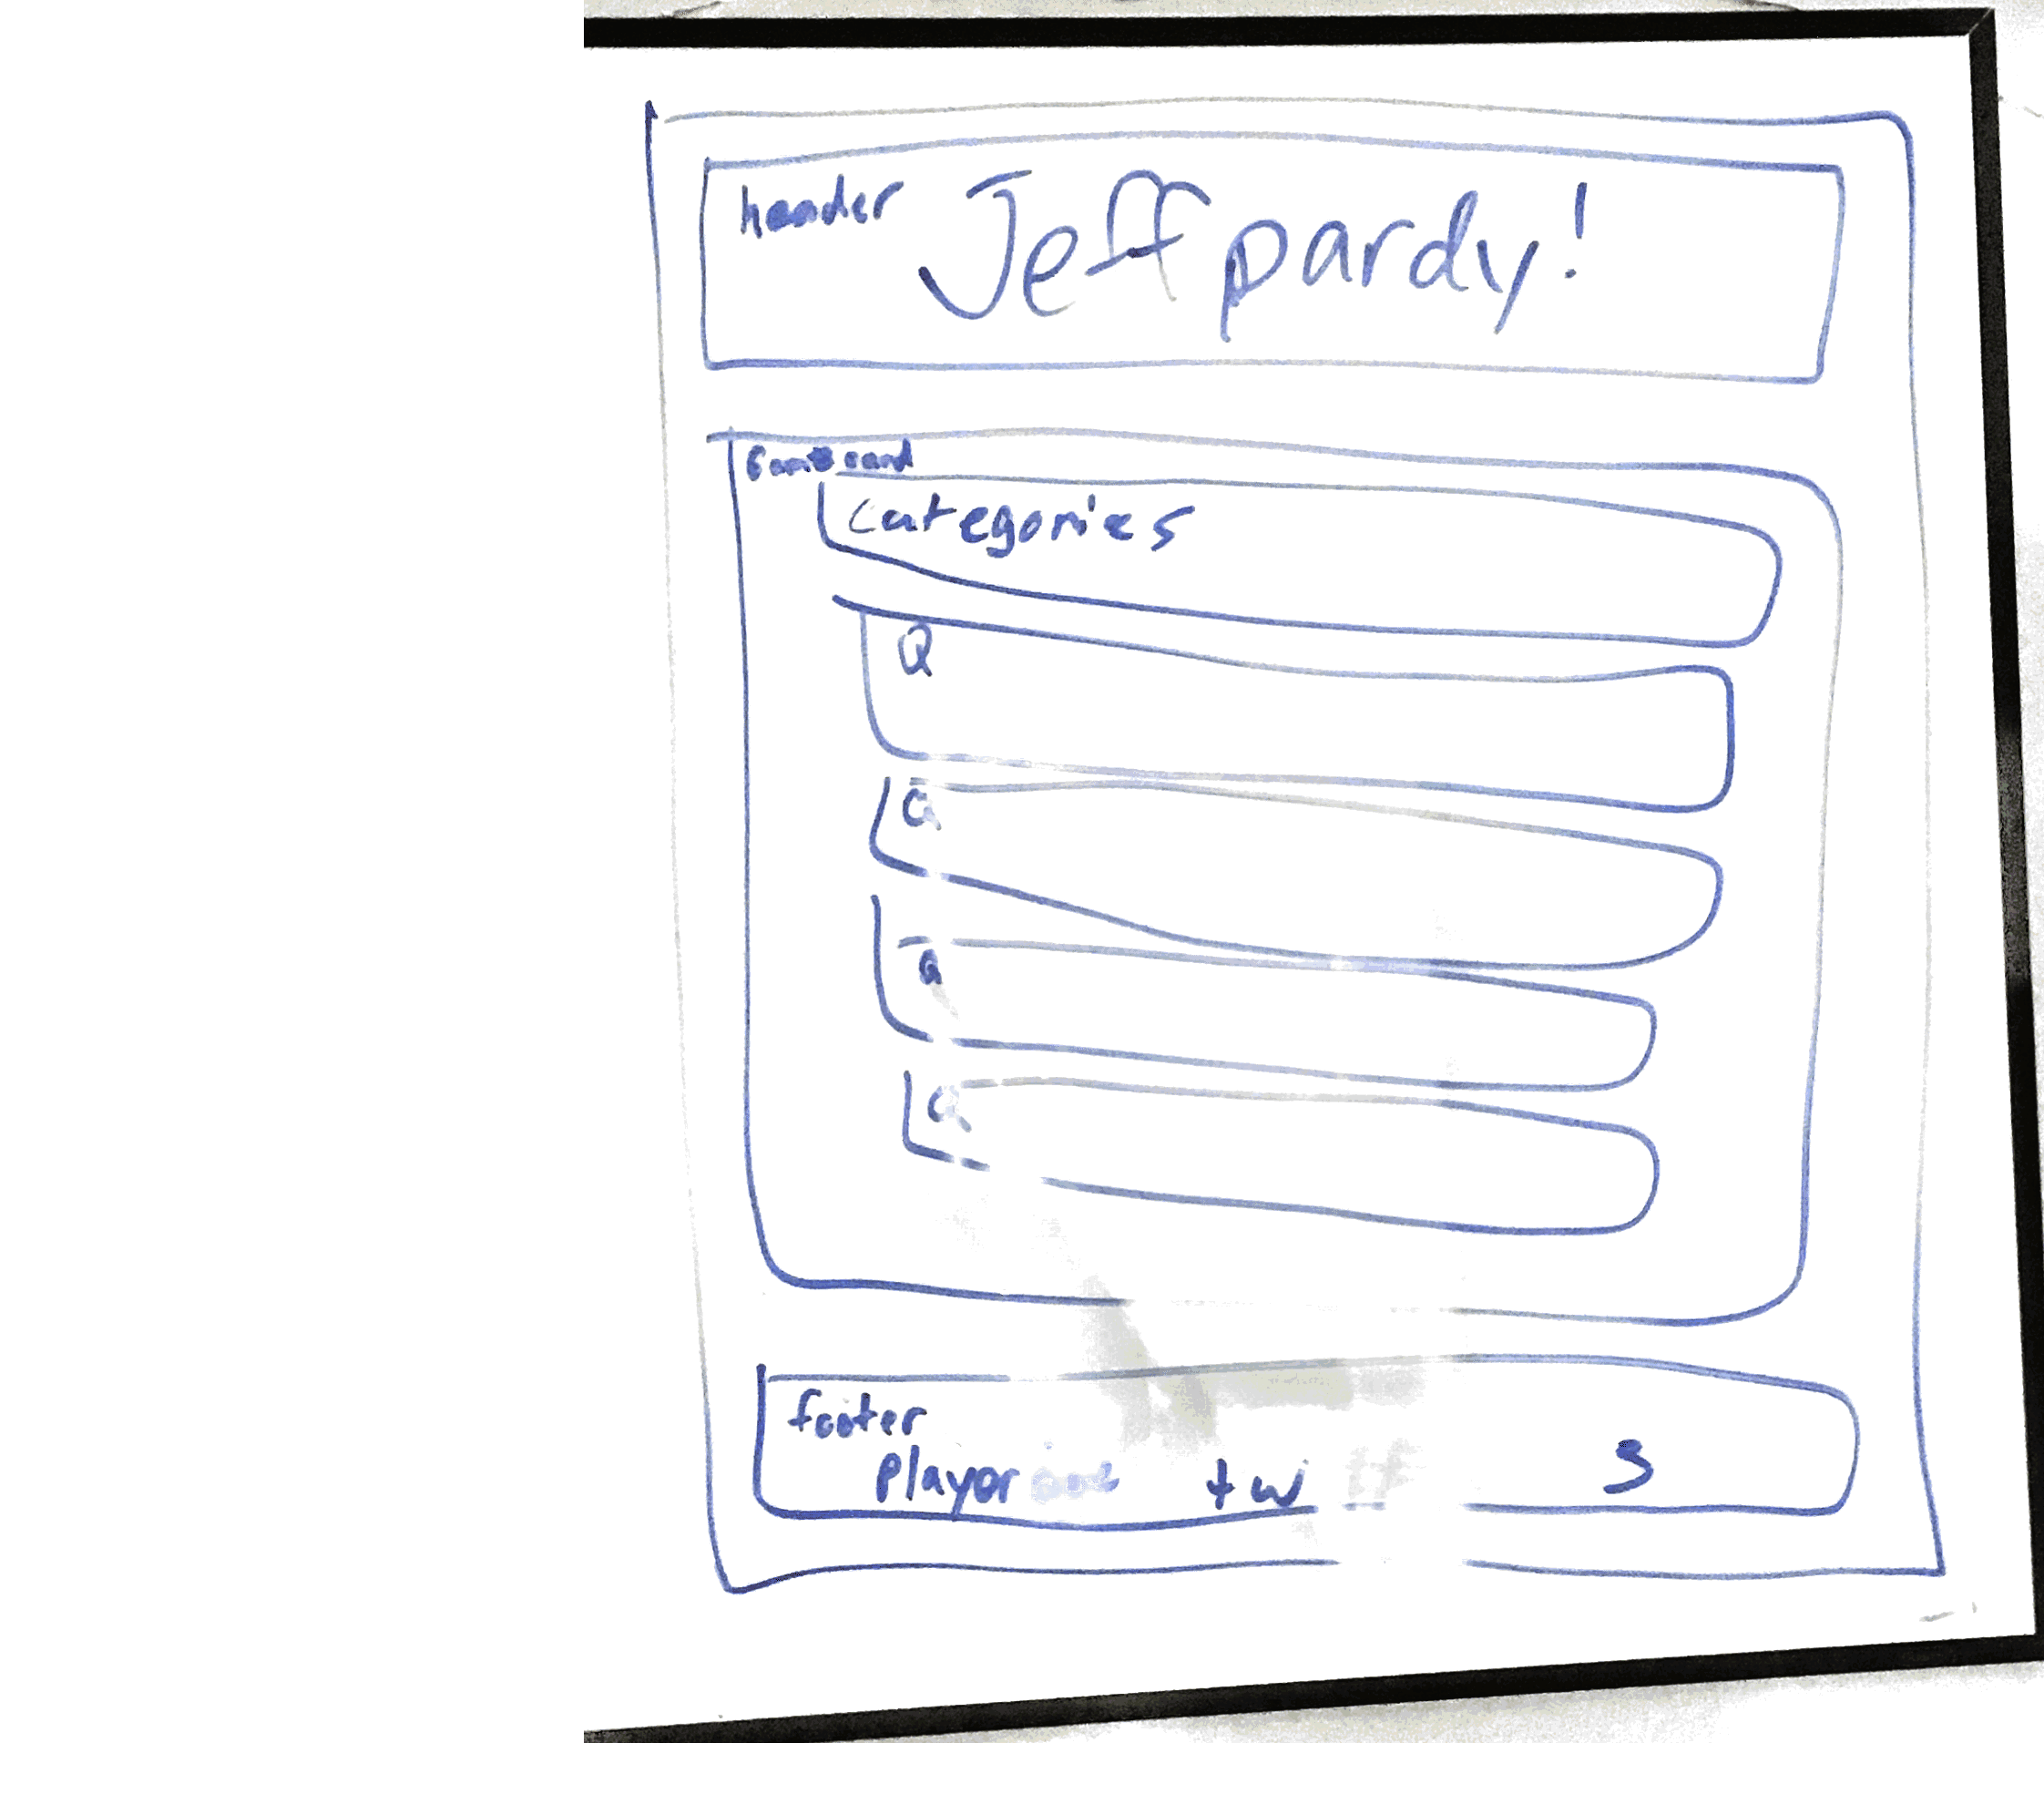 header Jeffpardy!
Gameboard
Categories
Q
Q
Q
Q
footer
player one tw 3